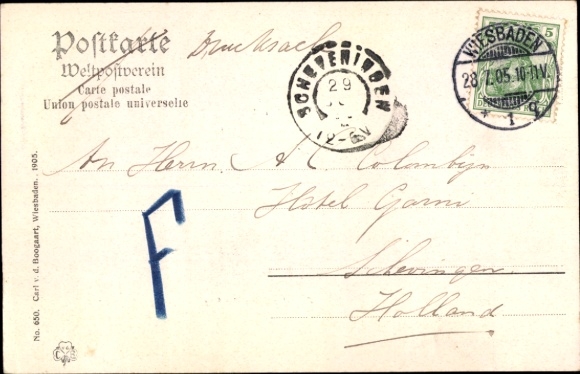 Postkarte Drucksache
Weltpostverein
Carte postale
Union postale universelle
SCHEVENINGEN
29
12-6V
WIESBADEN
28 7.05.10-11V.
* 1 g
5
An Herrn A C Colombijn
Hotel Garni
Scheveningen
Holland
F
No. 650. Carl v. d. Boogaart, Wiesbaden. 1905.